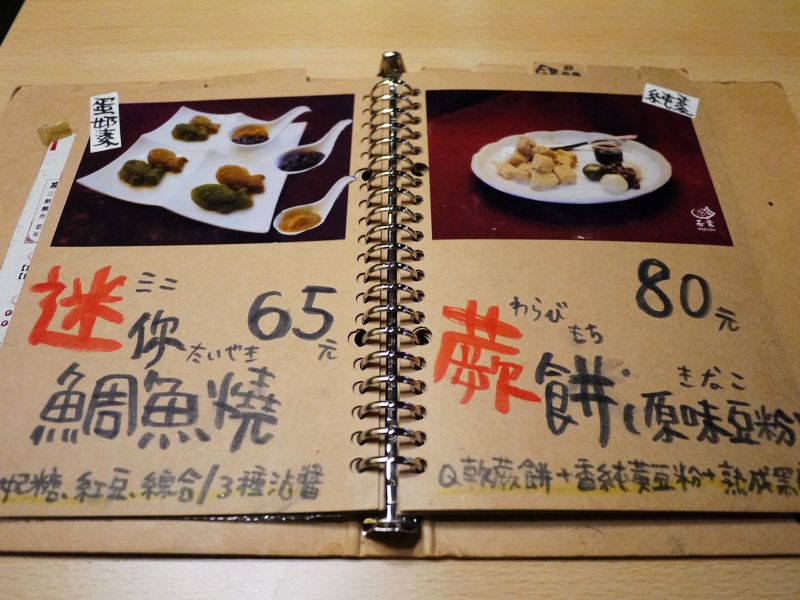 蛋奶素
迷你
ミニ
65元
たいやき
鯛魚燒
妃糖、紅豆、綜合/3種沾醬
純素
80元
わらび もち
蕨餅
きなこ
(原味豆粉)
Q軟蕨餅+香純黃豆粉+熟成黑
若葉